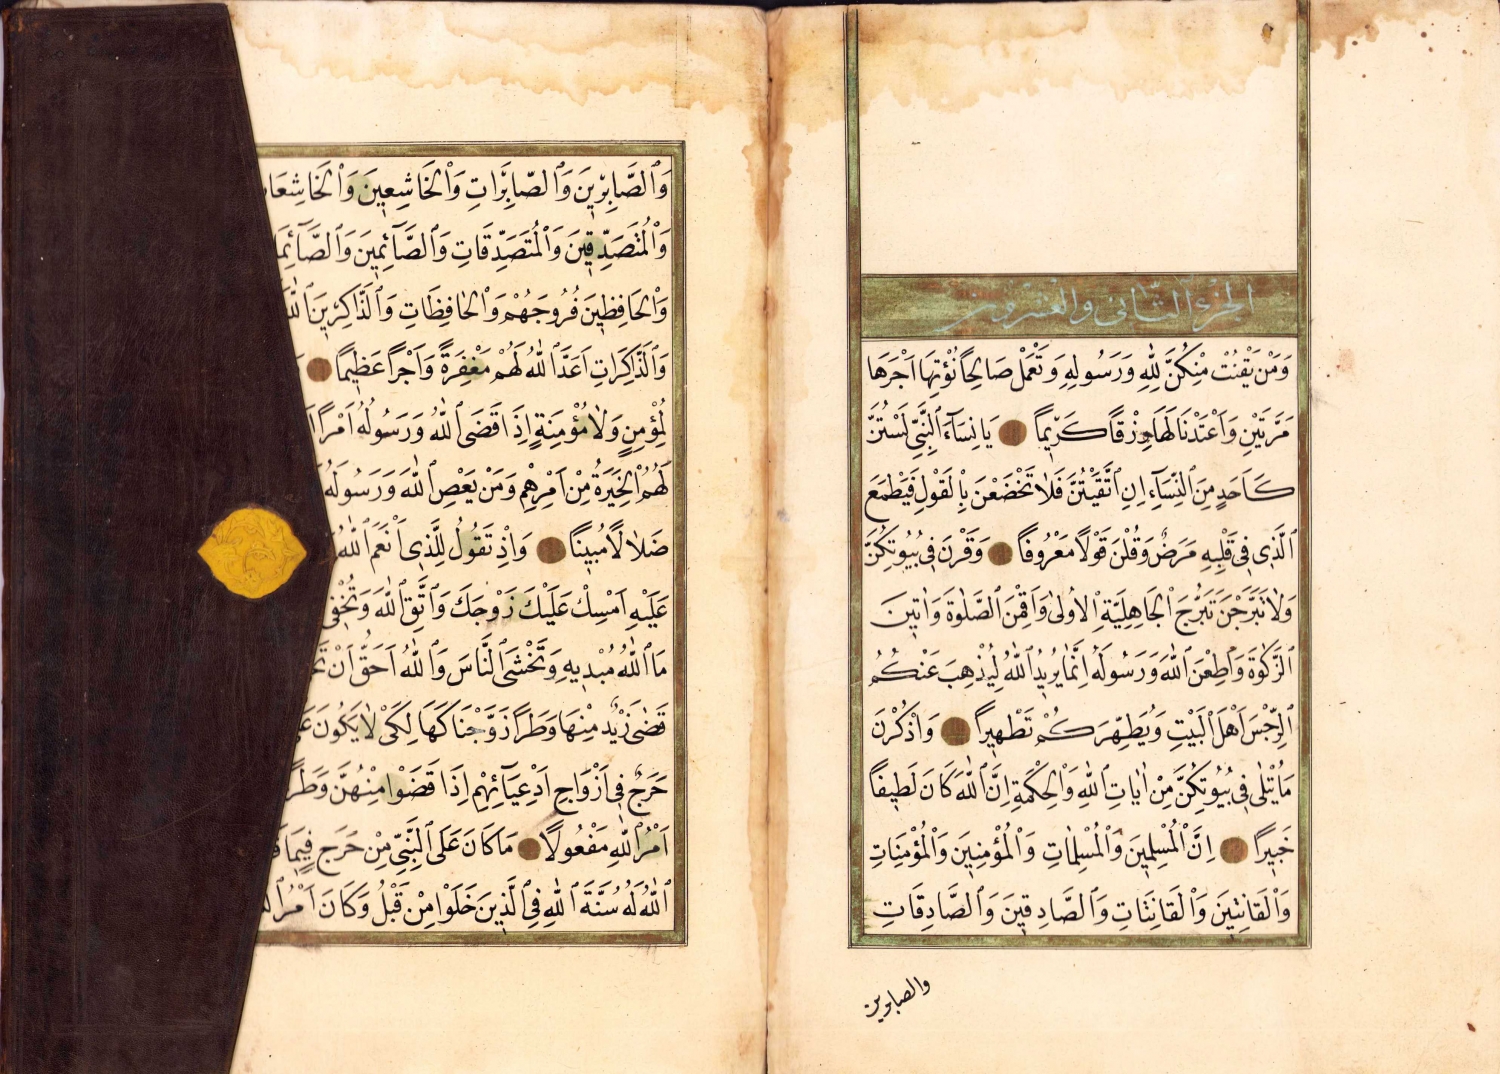 الجزء الثاني والعشرون
وَمَنْ يَقْنُتْ مِنْكُنَّ لِلّٰهِ وَرَسُولِهِ وَتَعْمَلْ صَالِحًا نُؤْتِهَا اَجْرَهَا
مَرَّتَيْنِ وَاَعْتَدْنَا لَهَا رِزْقًا كَرِيمًا يَا نِسَآءَ النَّبِيِّ لَسْتُنَّ
كَاَحَدٍ مِنَ النِّسَآءِ اِنِ اتَّقَيْتُنَّ فَلَا تَخْضَعْنَ بِالْقَوْلِ فَيَطْمَعَ
الَّذِي فِي قَلْبِهِ مَرَضٌ وَقُلْنَ قَوْلًا مَعْرُوفًا وَقَرْنَ فِي بُيُوتِكُنَّ
وَلَا تَبَرَّجْنَ تَبَرُّجَ الْجَاهِلِيَّةِ الْاُولٰى وَاَقِمْنَ الصَّلٰوةَ وَاٰتِينَ
الزَّكٰوةَ وَاَطِعْنَ اللّٰهَ وَرَسُولَهُ اِنَّمَا يُرِيدُ اللّٰهُ لِيُذْهِبَ عَنْكُمُ
الرِّجْسَ اَهْلَ الْبَيْتِ وَيُطَهِّرَكُمْ تَطْهِيرًا وَاذْكُرْنَ
مَا يُتْلٰى فِي بُيُوتِكُنَّ مِنْ اٰيَاتِ اللّٰهِ وَالْحِكْمَةِ اِنَّ اللّٰهَ كَانَ لَطِيفًا
خَبِيرًا اِنَّ الْمُسْلِمِينَ وَالْمُسْلِمَاتِ وَالْمُؤْمِنِينَ وَالْمُؤْمِنَاتِ
وَالْقَانِتِينَ وَالْقَانِتَاتِ وَالصَّادِقِينَ وَالصَّادِقَاتِ
والصابرين
وَالصَّابِرِينَ وَالصَّابِرَاتِ وَالْخَاشِعِينَ وَالْخَاشِعَا
وَالْمُتَصَدِّقِينَ وَالْمُتَصَدِّقَاتِ وَالصَّآئِمِينَ وَالصَّآئِمَا
وَالْحَافِظِينَ فُرُوجَهُمْ وَالْحَافِظَاتِ وَالذَّاكِرِينَ اللّٰهَ
وَالذَّاكِرَاتِ اَعَدَّ اللّٰهُ لَهُمْ مَغْفِرَةً وَاَجْرًا عَظِيمًا
لِمُؤْمِنٍ وَلَا مُؤْمِنَةٍ اِذَا قَضَى اللّٰهُ وَرَسُولُهُ اَمْرًا
لَهُمُ الْخِيَرَةُ مِنْ اَمْرِهِمْ وَمَنْ يَعْصِ اللّٰهَ وَرَسُولَهُ
ضَلَالًا مُبِينًا وَاِذْ تَقُولُ لِلَّذِي اَنْعَمَ اللّٰهُ
عَلَيْهِ اَمْسِكْ عَلَيْكَ زَوْجَكَ وَاتَّقِ اللّٰهَ وَتُخْفِي
مَا اللّٰهُ مُبْدِيهِ وَتَخْشَى النَّاسَ وَاللّٰهُ اَحَقُّ اَنْ
قَضٰى زَيْدٌ مِنْهَا وَطَرًا زَوَّجْنَاكَهَا لِكَيْ لَا يَكُونَ
حَرَجٌ فِي اَزْوَاجِ اَدْعِيَآئِهِمْ اِذَا قَضَوْا مِنْهُنَّ وَطَرًا
اَمْرُ اللّٰهِ مَفْعُولًا مَا كَانَ عَلَى النَّبِيِّ مِنْ حَرَجٍ فِيمَا
اللّٰهُ لَهُ سُنَّةَ اللّٰهِ فِي الَّذِينَ خَلَوْا مِنْ قَبْلُ وَكَانَ اَمْرُ